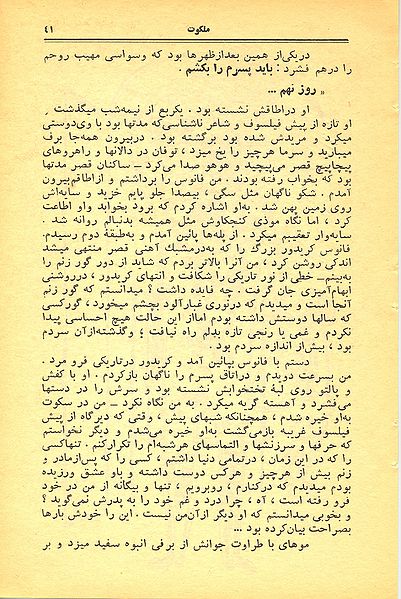 ملکوت
٤١
دریکی‌از همین بعدازظهرها بود که وسواسی مهیب روحم
را درهم فشرد : باید پسرم را بکشم .
« روز نهم ...
او دراطاقش نشسته بود . یکربع از نیمه‌شب میگذشت .
او تازه از پیش فیلسوف و شاعر ناشناسی‌که مدتها بود با وی‌دوستی
میکرد و مریدش شده بود برگشته بود . دربیرون همه‌جا برف
میبارید و سرما هرچیز را یخ میزد ، توفان در دالانها و راهروهای
پیچاپیچ قصر می‌پیچید و هوهو صدا می‌کرد ــ ساکنان قصر مدتها
بود که بخواب رفته بودند . من فانوس را برداشتم و ازاطاقم‌بیرون
آمدم . شکو ناگهان مثل سگی ، بیصدا جلو پایم خزید و سایه‌اش
روی زمین پهن شد . به‌او اشاره کردم که برود بخوابد واو اطاعت
کرد ، اما نگاه موذی کنجکاوش مثل همیشه بدنبالم روانه شد .
سایه‌وار تعقیبم میکرد . از پله‌ها پائین آمدم و به‌طبقه دوم رسیدم.
فانوس کریدور بزرگ را که به‌درمشبك آهنی قصر منتهی میشد
اندکی روشن کرد ، من آنرا بالاتر بردم که شاید از دور گور زنم را
به‌بینم ــ خطی از نور تاریکی را شکافت و انتهای کریدور ، درروشنی
ابهام‌آمیزی جان گرفت . چه فایده داشت ؟ میدانستم که گور زنم
آنجا است و میدیدم که درنوری غبارآلود بچشم میخورد ، گورکسی
که سالها دوستش داشته بودم امااز این حالت هیچ احساسی پیدا
نکردم و غمی یا رنجی تازه بدلم راه نیافت ؛ وگذشته‌ازآن سردم
بود ، بیش‌از اندازه سردم بود .
دستم با فانوس بپائین آمد و کریدور درتاریکی فرو مرد .
من بسرعت دویدم و دراتاق پسرم را ناگهان بازکردم . او با کفش
و پالتو روی لبهٔ تختخوابش نشسته بود و سرش را در دستها
می‌فشرد و آهسته گریه میکرد . به من نگاه نکرد ــ من در سکوت
به‌او خیره شدم ، همچنانکه شبهای پیش ، وقتی که دیرگاه از پیش
فیلسوف غریبه بازمی‌گشت به‌او خیره می‌شدم و دیگر نخواستم
که حرفها و سرزنشها و التماسهای هرشبه‌ام را تکرارکنم . تنهاکسی
را که در این زمان ، درتمامی دنیا داشتم ، کسی را که پس‌ازمادر و
زنم بیش از هرچیز و هرکس دوست داشته و باو عشق ورزیده
بودم میدیدم که درکنارم ، روبرویم ، تنها و بیگانه از من در خود
فرو رفته است ، آه ، چرا درد و غم خود را به پدرش نمی‌گوید ؟
و بخوبی میدانستم که او دیگر ازآن‌من نیست . این را خودش بارها
بصراحت بیان‌کرده بود ...
موهای با طراوت جوانش از برفی انبوه سفید میزد و بر